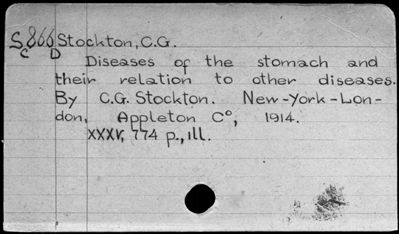 S.866 Stockton, C.G.
C D Diseases of the stomach and
their relation to other diseases.
By C.G. Stockton. New-York-Lon-
don, Appleton Cº, 1914.
XXXV, 774 p., ill.